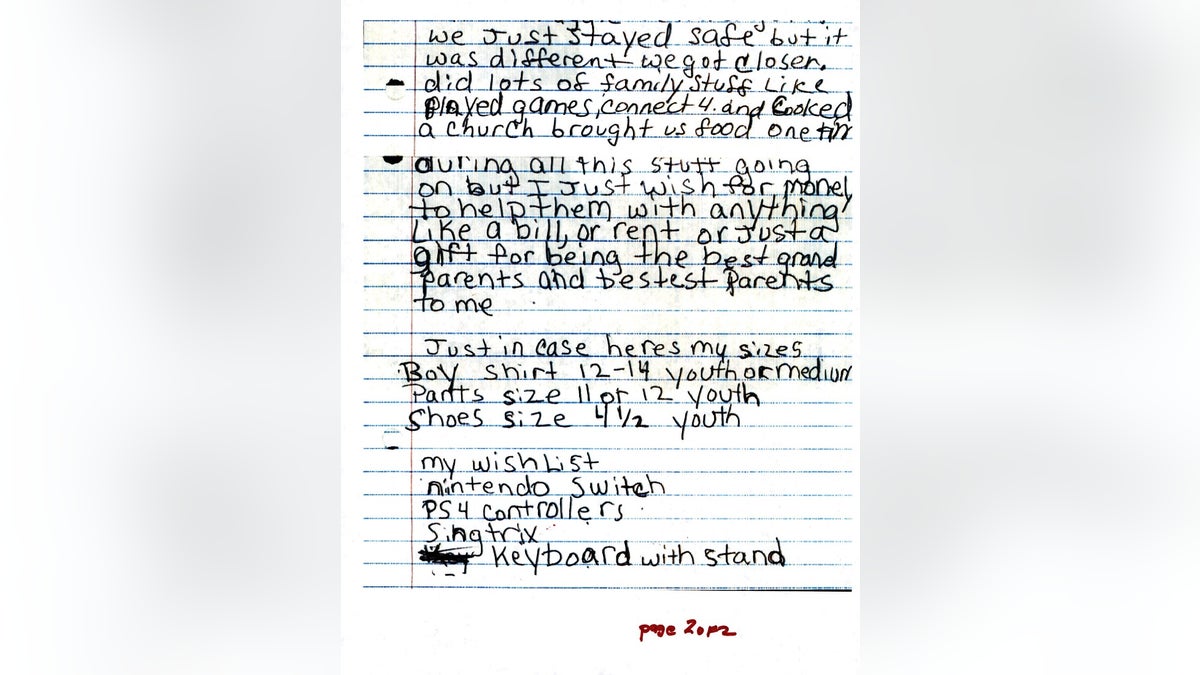 we Just stayed safe but it
was different we got closer.
did lots of family stuff Like
played games, connect 4. and Cooked
a church brought us food one
during all this stuff going
on but I Just wish for money
to help them with anything
Like a bill, or rent or Just a
gift for being the best grand
parents and bestest parents
to me
Just in case heres my sizes
Boy shirt 12-14 youth or medium
Pants size 11 or 12 youth
Shoes size 4 1/2 youth
my wish List
nintendo Switch
PS4 controllers
Singtrix
Keyboard with stand
page 2 of 2